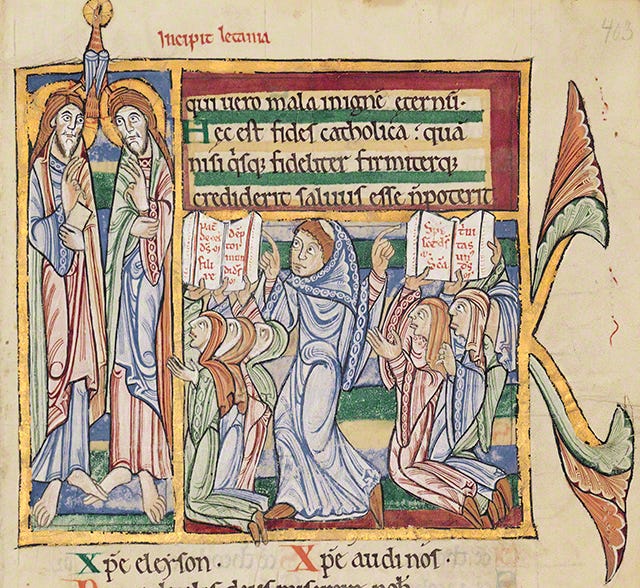 403
Incipit letania
qui uero mala inignē eternū·
Hec est fides catholica : quā
nisi q̄sq; fideliter firmiterq;
crediderit saluus esse n̄ poterit
fili
mun
Spi
Scā
tas
Xp̄e eleyson· Xp̄e audi nos·